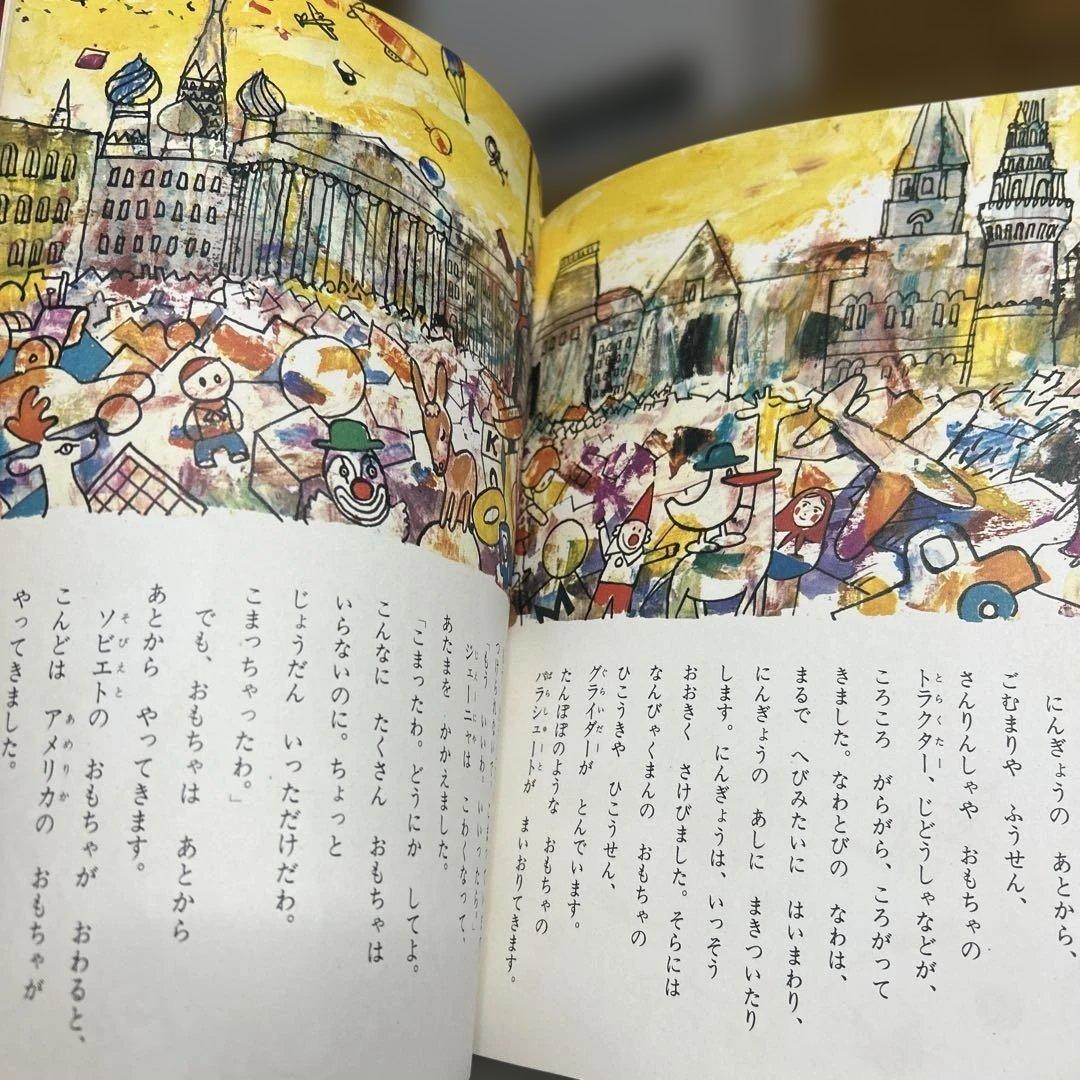 にんぎょうの　あとから、
ごむまりや　ふうせん、
さんりんしゃや　おもちゃの
トラクター、じどうしゃなどが、
ころころ　がらがら、ころがって
きました。なわとびの　なわは、
まるで　へびみたいに　はいまわり、
にんぎょうの　あしに　まきついたり
します。にんぎょうは、いっそう
おおきく　さけびました。そらには
なんびゃくまんの　おもちゃの
ひこうきや　ひこうせん、
グライダーが　とんでいます。
たんぽぽのような　おもちゃの
パラシュートが　まいおりてきます。
「もう　いいわ。いいったら！」
ジェーニャは　こわくなって、
あたまを　かかえました。
「こまったわ。どうにか　してよ。
こんなに　たくさん　おもちゃは
いらないのに。ちょっと
じょうだん　いっただけだわ。
こまっちゃったわ。」
でも、おもちゃは　あとから
あとから　やってきます。
ソビエトの　おもちゃが　おわると、
こんどは　アメリカの　おもちゃが
やってきました。
K